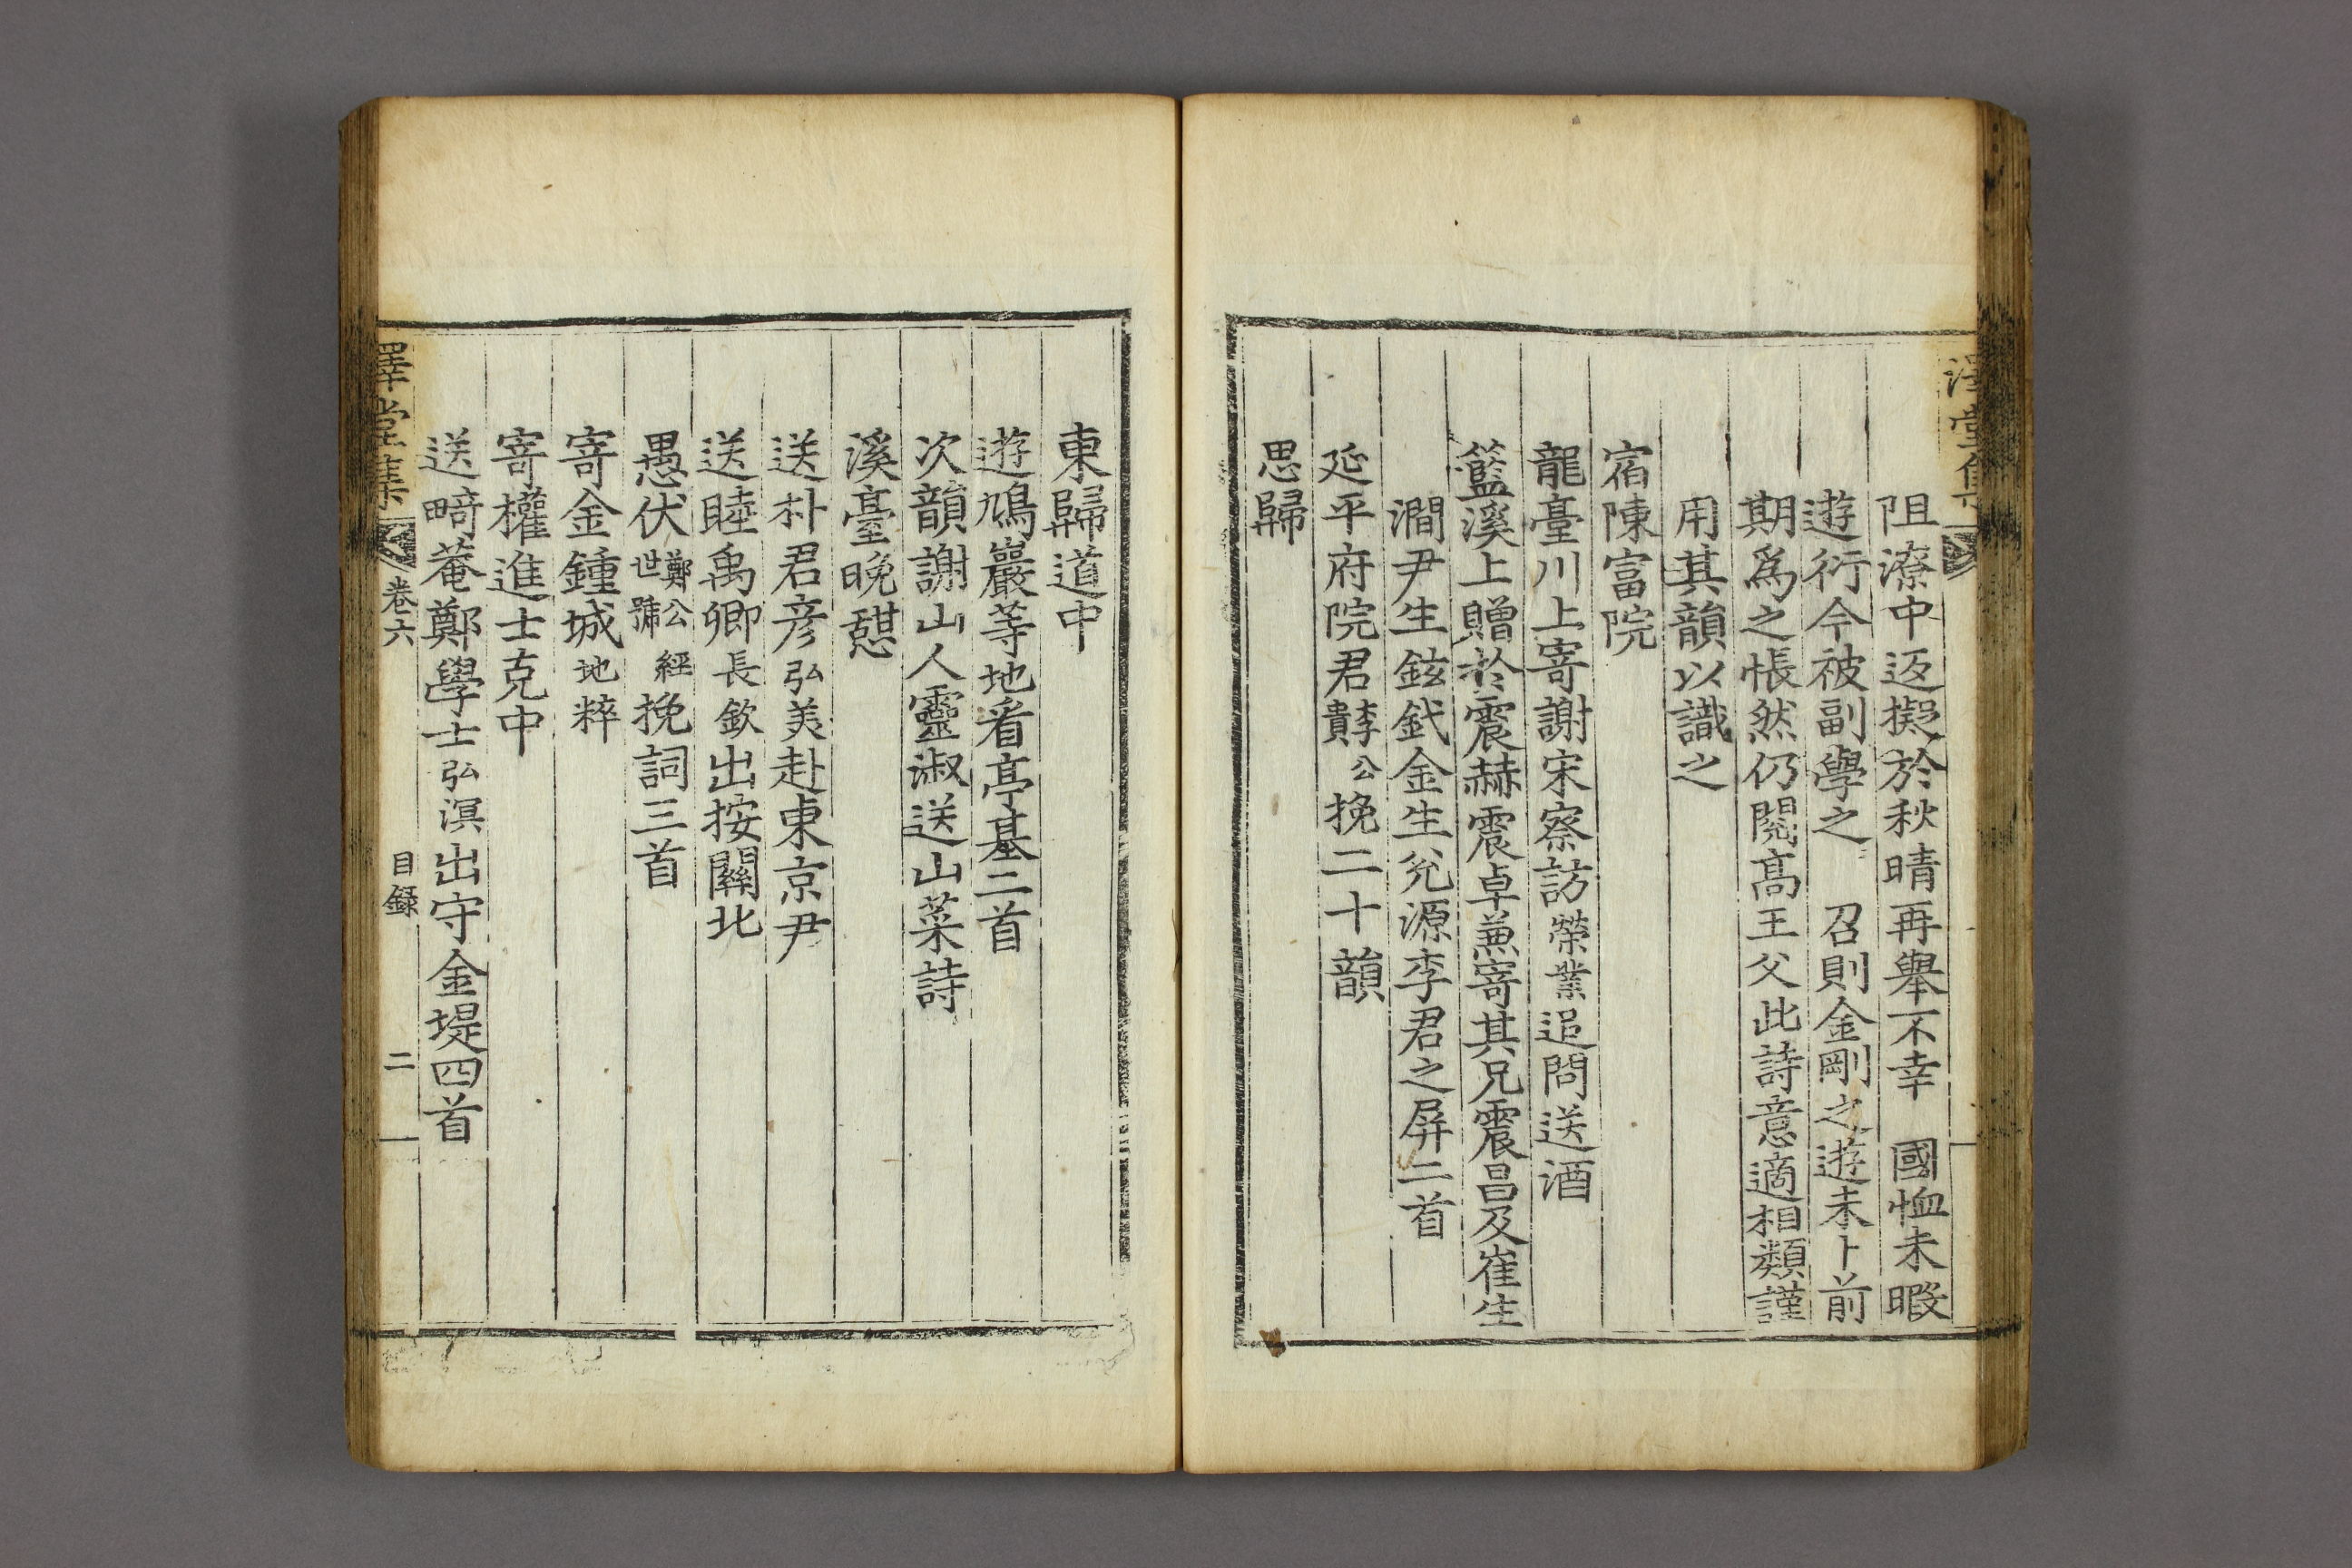 阻潦中返擬於秋晴再舉不幸 國恤未暇
遊行今被副學之 召則金剛之遊未卜前
期爲之悵然仍閱高王父此詩意適相類謹
用其韻以識之
宿陳富院
龍臺川上寄謝宋察訪榮業追問送酒
籃溪上贈於震赫震卓兼寄其兄震昌及崔生
澗尹生鉉鉽金生兊源李君之屏二首
延平府院君李公貴挽二十韻
思歸
東歸道中
遊鳩巖等地看亭基二首
次韻謝山人靈淑送山菜詩
溪臺晩憇
送朴君彦弘美赴東京尹
送睦禹卿長欽出按關北
愚伏鄭公經世號挽詞三首
寄金鍾城地粹
寄權進士克中
送畸菴鄭學士弘溟出守金堤四首
澤堂集 卷六 目録 二